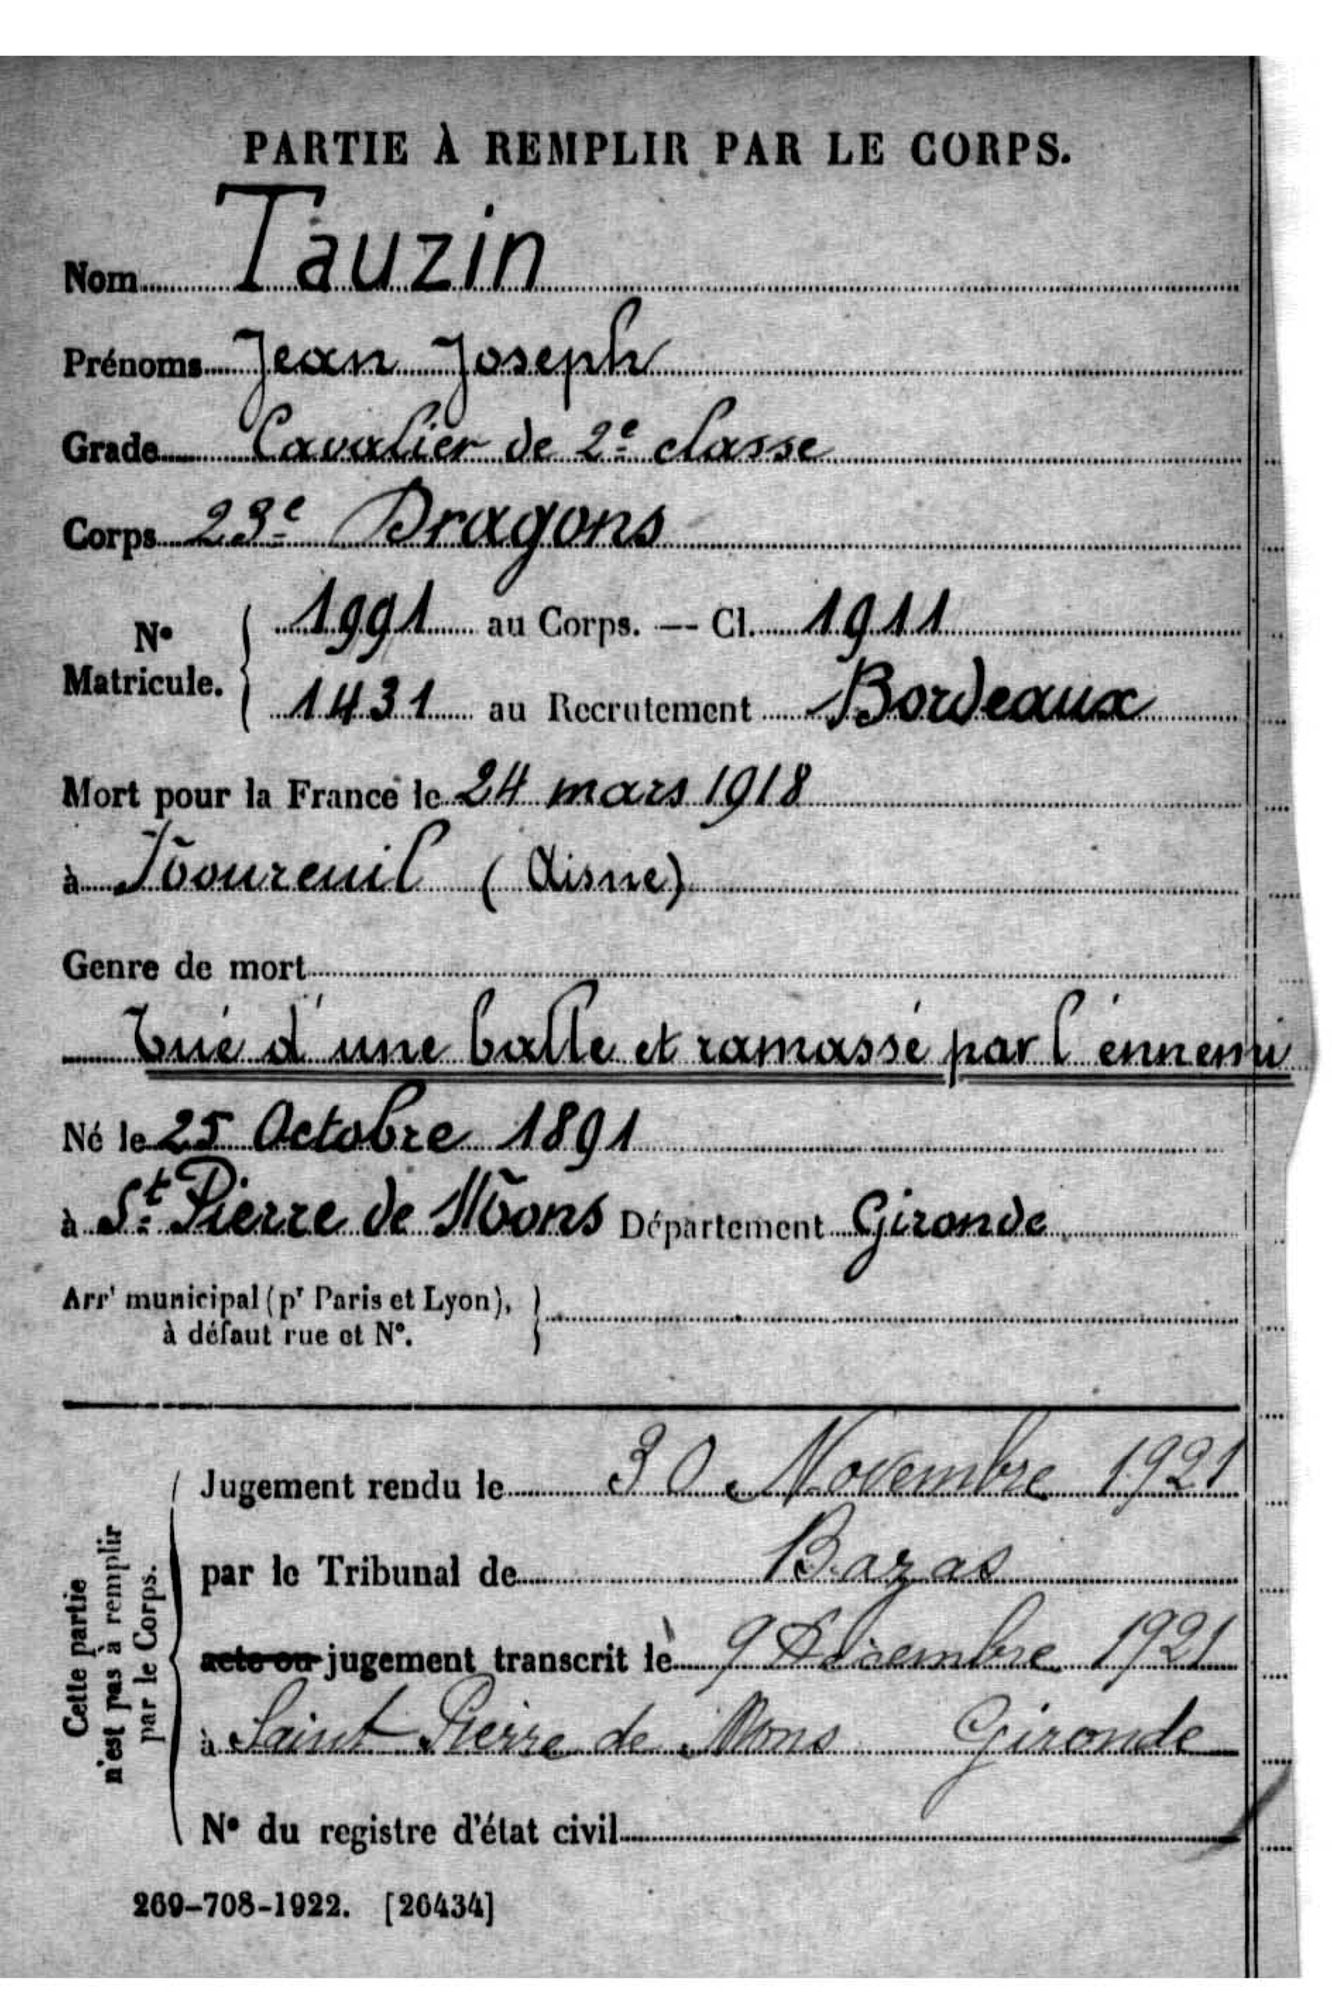 PARTIE À REMPLIR PAR LE CORPS.
Nom Tauzin
Prénoms Jean Joseph
Grade Cavalier de 2e classe
Corps 23e Dragons
No Matricule. { 1991 au Corps. — Cl. 1911
1431 au Recrutement Bordeaux
Mort pour la France le 24 mars 1918
à Noureuil (Aisne)
Genre de mort
Tué d'une balle et ramassé par l'énnemi
Né le 25 Octobre 1891
à St Pierre de Mons Département Gironde
Arrt municipal (pr Paris et Lyon), }
à défaut rue et No.
Cette partie n'est pas à remplir par le Corps.
Jugement rendu le 30 Novembre 1921
par le Tribunal de Bazas
acte ou jugement transcrit le 9 Décembre 1921
à Saint Pierre de Mons Gironde
No du registre d'état civil
269-708-1922. [26434]